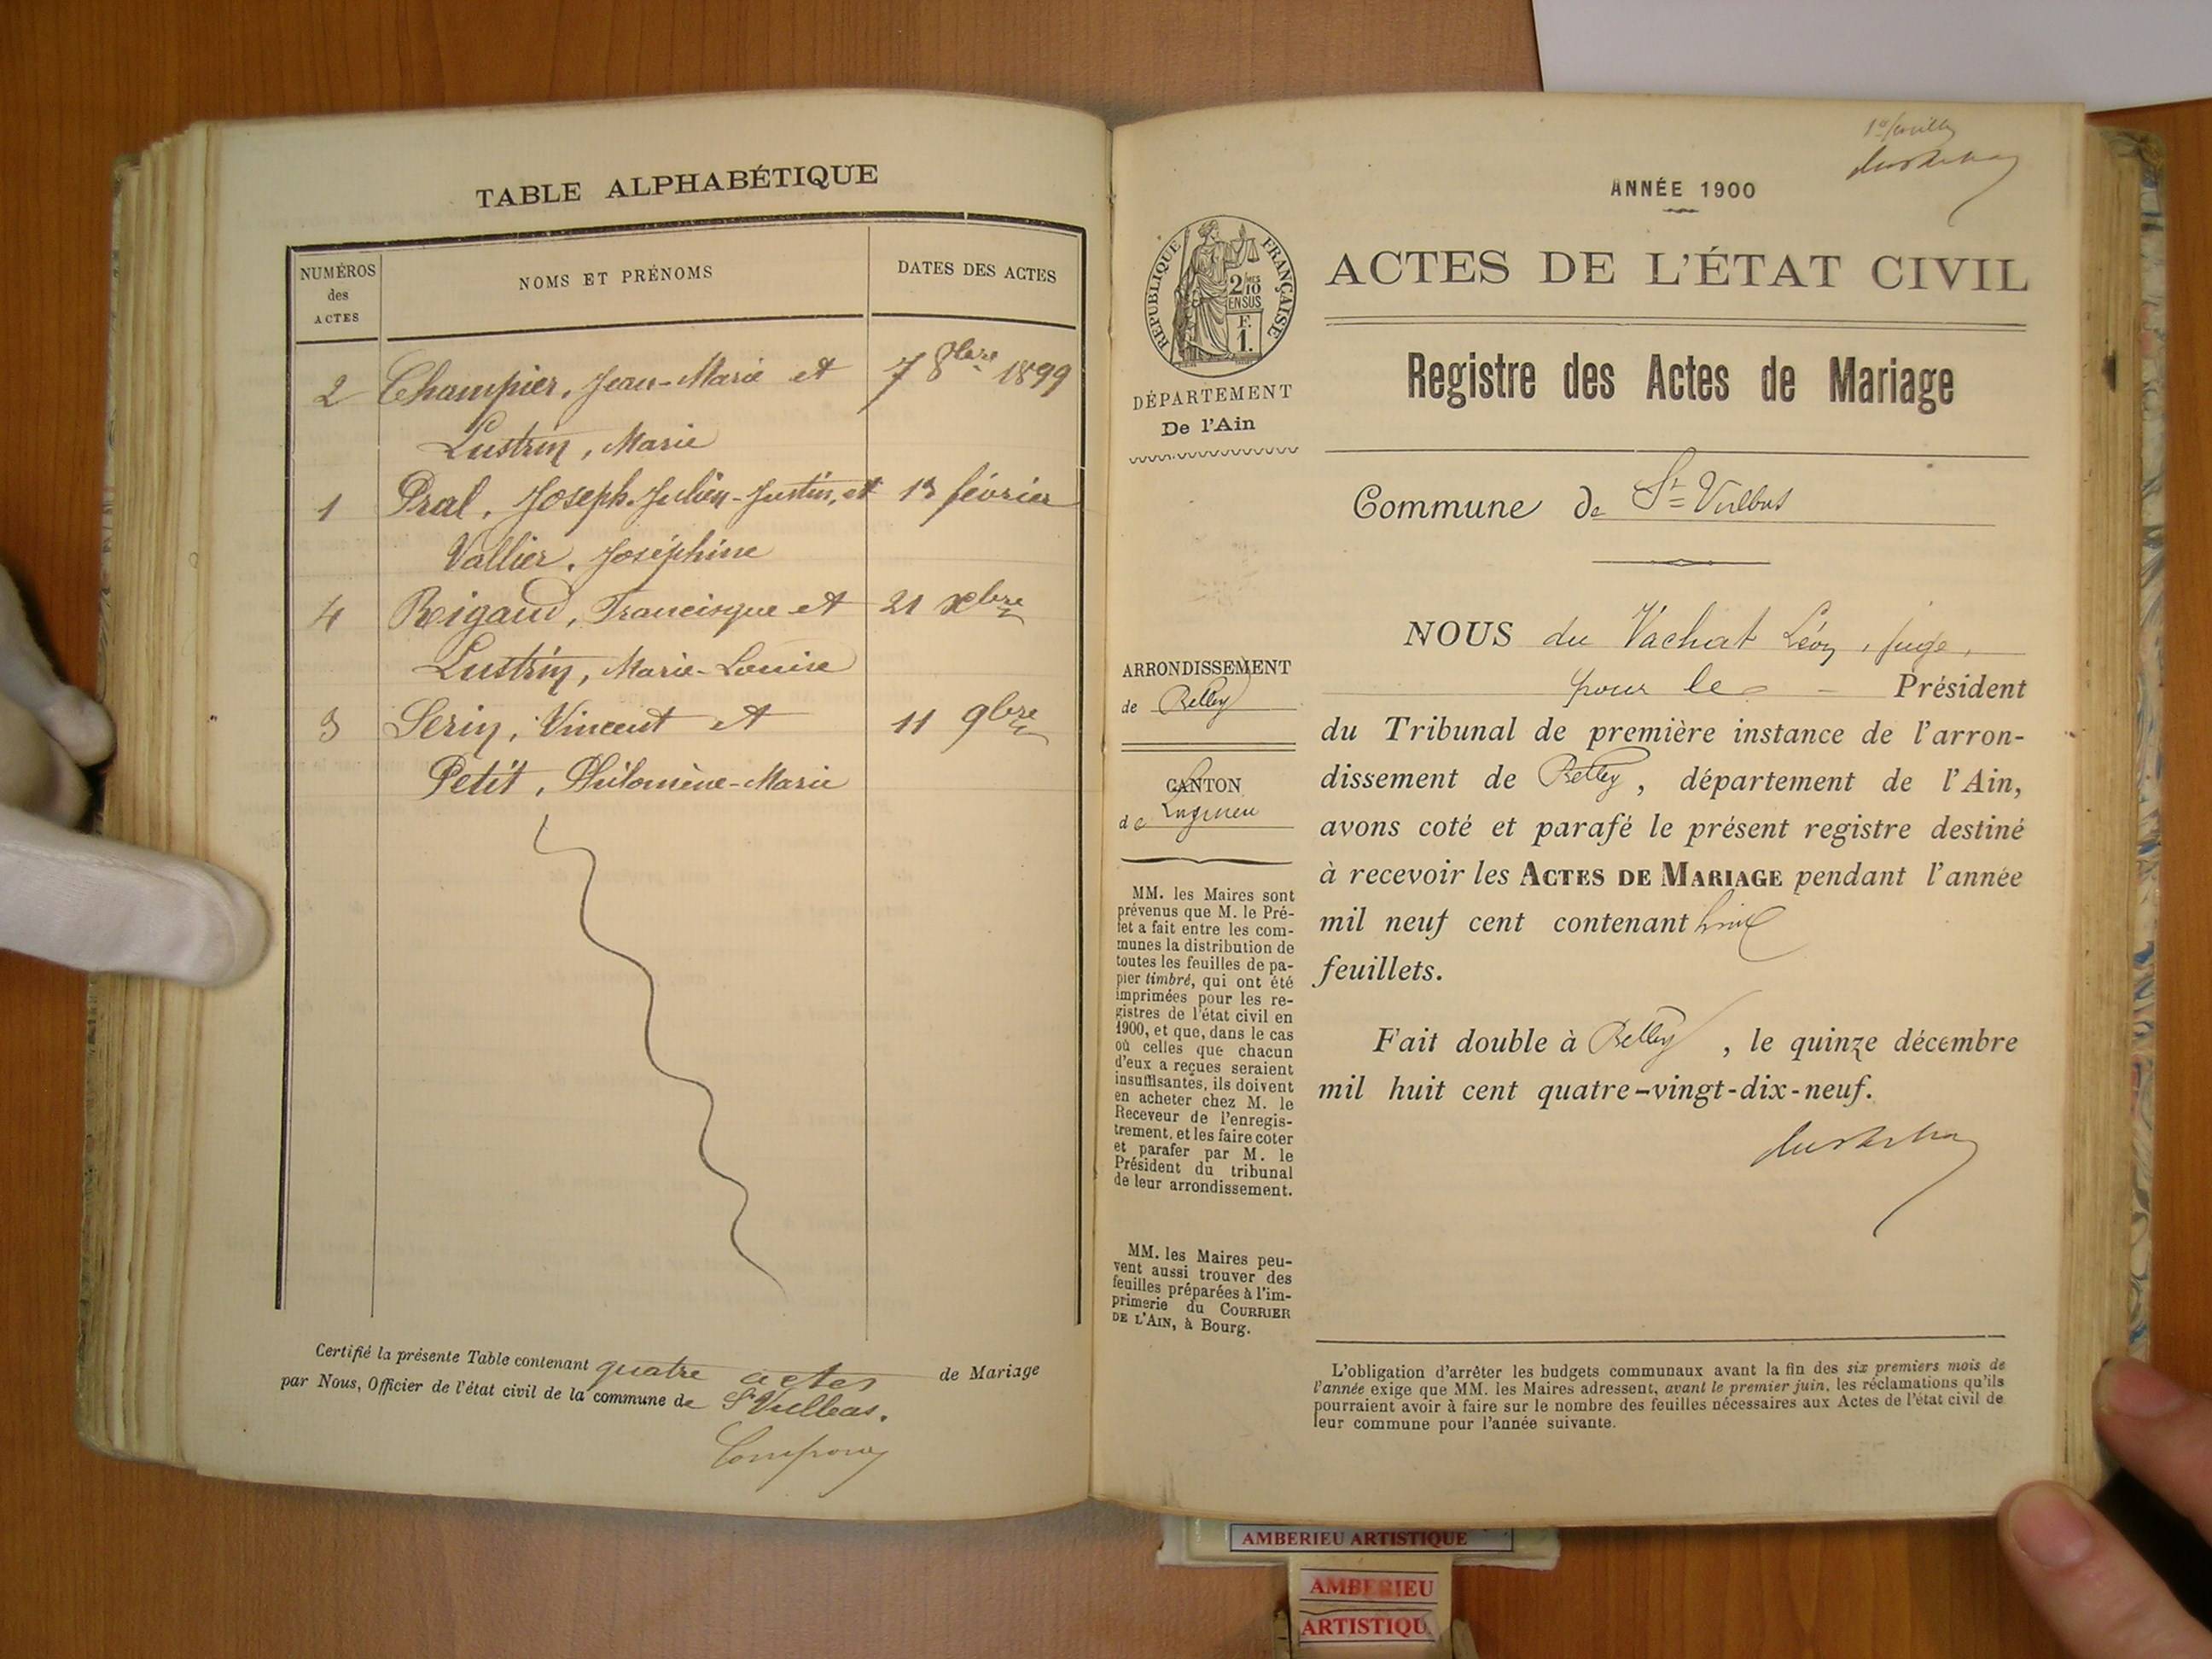 TABLE ALPHABÉTIQUE
NUMÉROS
des
ACTES
NOMS ET PRÉNOMS
DATES DES ACTES
2 Champier, Jean-Marie et 7 8bre 1899
Lustrin, Marie
1 Pral, Joseph-Julien-Justin, et 13 février
Vallier, Joséphine
4 Rigaud, Francisque et 21 xbre
Lustrin, Marie-Louise
3 Serin, Vincent et 11 9bre
Petit, Philomène-Marie
Certifié la présente Table contenant quatre actes de Mariage
par Nous, Officier de l'état civil de la commune de St Vulbas.
ANNÉE 1900
RÉPUBLIQUE FRANÇAISE
2/10
EN SUS
F.
1.
ACTES DE L'ÉTAT CIVIL
Registre des Actes de Mariage
DÉPARTEMENT
De l'Ain
Commune de St Vulbas
NOUS du Vachat Léon, juge,
pour le Président
du Tribunal de première instance de l'arron-
dissement de Belley, département de l'Ain,
avons coté et parafé le présent registre destiné
à recevoir les ACTES DE MARIAGE pendant l'année
mil neuf cent contenant huit
feuillets.
Fait double à Belley, le quinze décembre
mil huit cent quatre-vingt-dix-neuf.
ARRONDISSEMENT
de Belley
CANTON
de Lagnieu
MM. les Maires sont
prévenus que M. le Pré-
fet a fait entre les com-
munes la distribution de
toutes les feuilles de pa-
pier timbré, qui ont été
imprimées pour les re-
gistres de l'état civil en
1900, et que, dans le cas
où celles que chacun
d'eux a reçues seraient
insuffisantes, ils doivent
en acheter chez M. le
Receveur de l'enregis-
trement, et les faire coter
et parafer par M. le
Président du tribunal
de leur arrondissement.
MM. les Maires peu-
vent aussi trouver des
feuilles préparées à l'im-
primerie du COURRIER
DE L'AIN, à Bourg.
L'obligation d'arrêter les budgets communaux avant la fin des six premiers mois de
l'année exige que MM. les Maires adressent, avant le premier juin, les réclamations qu'ils
pourraient avoir à faire sur le nombre des feuilles nécessaires aux Actes de l'état civil de
leur commune pour l'année suivante.
AMBERIEU ARTISTIQUE
AMBERIEU
ARTISTIQU